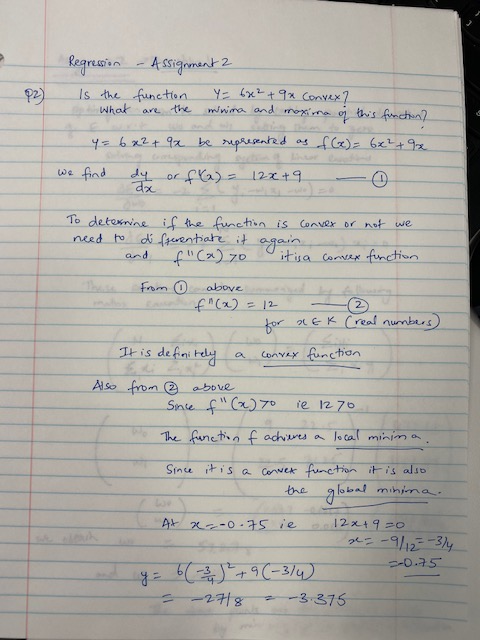 Regression - Assignment 2
Q2) Is the function Y = 6x² + 9x convex?
What are the minima and maxima of this function?
y = 6x² + 9x be represented as f(x) = 6x² + 9x
we find dy/dx or f'(x) = 12x + 9 —— ①
To determine if the function is convex or not we
need to differentiate it again
and f''(x) > 0 it is a convex function
From ① above
f''(x) = 12 —— ②
for x ∈ K (real numbers)
It is definitely a convex function
Also from ② above
Since f''(x) > 0 ie 12 > 0
The function f achieves a local minima.
Since it is a convex function it is also
the global minima.
At x = -0.75 ie 12x + 9 = 0
x = -9/12 = -3/4
= -0.75
y = 6(-3/4)² + 9(-3/4)
= -27/8 = -3.375